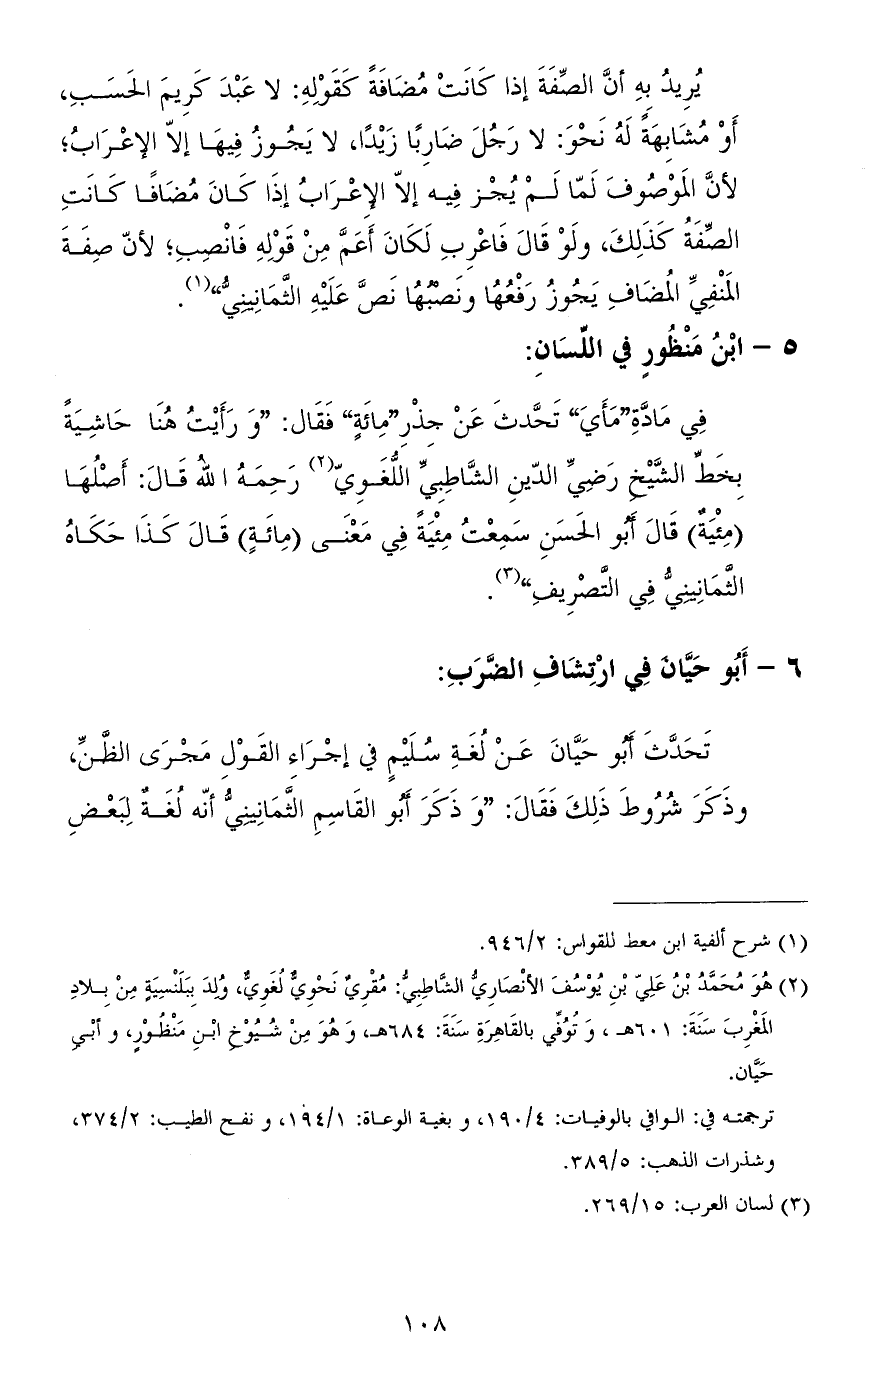 يُرِيدُ بِهِ أنَّ الصِّفَةَ إذا كَانَتْ مُضَافَةً كَقَوْلِهِ: لا عَبْدَ كَرِيمَ الحَسَبِ،
أَوْ مُشَابِهَةً لَهُ نَحْوَ: لا رَجُلَ ضَارِبًا زَيْدًا، لا يَجُوزُ فِيهَا إلاّ الإعْرَابُ؛
لأنَّ المَوْصُوفَ لَمّا لَمْ يُجْز فِيه إلاّ الإعْرَابُ إذَا كَانَ مُضَافًا كَانَتِ
الصِّفَةُ كَذَلِكَ، ولَوْ قَالَ فَاعْرِب لَكَانَ أَعَمَّ مِنْ قَوْلِهِ فَانْصِب؛ لأنّ صِفَةَ
المَنْفِيِّ المُضَافِ يَجُوزُ رَفْعُهَا ونَصْبُهَا نَصَّ عَلَيْهِ الثَّمَانِينِيُّ“(١).
٥ – ابْنُ مَنْظُورٍ في اللّسَانِ:
فِي مَادَّةِ”مَأَيَ“ تَحَّدثَ عَنْ جِذْرِ”مِائَةٍ“ فَقَال: ”وَ رَأَيْتُ هُنَا حَاشِيَةً
بِخَطِّ الشَّيْخِ رَضِيِّ الدّينِ الشَّاطِبيِّ اللُّغَويّ(٢) رَحِمَهُ اللهُ قَالَ: أَصْلُهَا
(مِئْيَةٌ) قَالَ أَبُو الحَسَنِ سَمِعْتُ مِئْيَةً فِي مَعْنَى (مِائَةٍ) قَالَ كَذَا حَكَاهُ
الثَّمَانِينِيُّ فِي التَّصْرِيفِ“(٣).
٦ – أَبُو حَيَّانَ فِي ارْتِشَافِ الضَّرَبِ:
تَحَدَّثَ أَبُو حَيَّانَ عَنْ لُغَةِ سُلَيْمٍ في إجْرَاءِ القَوْلِ مَجْرَى الظَّنِّ،
وذَكَرَ شُرُوطَ ذَلِكَ فَقَالَ: ”وَ ذَكَرَ أَبُو القَاسِمِ الثَّمَانِينِيُّ أنّه لُغَةٌ لِبَعْضِ
(١) شرح ألفية ابن معط للقواس: ٩٤٦/٢.
(٢) هُوَ مُحَمَّدُ بْنُ عَلِيّ بْنِ يُوْسُفَ الأنْصَارِيُّ الشَّاطِبيُّ: مُقْرِيٌ نَحْوِيٌّ لُغَوِيٌّ، وُلِدَ بِبَلَنْسِيَةٍ مِنْ بِلادِ
المَغْرِبَ سَنَةَ: ٦٠١هـ ، وَ تُوُفِّي بالقَاهِرَةِ سَنَةَ: ٦٨٤هـ، وَ هُوَ مِنْ شُيُوْخِ ابْنِ مَنْظُوْرٍ، و أبْي
حَيَّان.
ترجمته في: الوافي بالوفيات: ١٩٠/٤، و بغية الوعاة: ١٩٤/١، و نفح الطيب: ٣٧٤/٢،
وشذرات الذهب: ٣٨٩/٥.
(٣) لسان العرب: ٢٦٩/١٥.
١٠٨